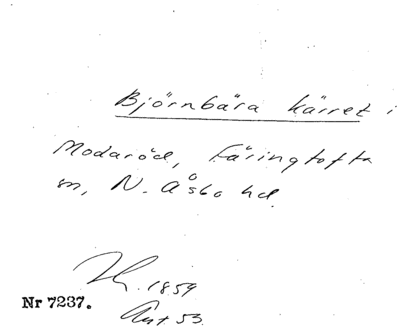 Björnbära kärret i
Modaröd, Färingtofta
sn, N. Åsbo hd.
1859
Nr 7237.
Ant 53.